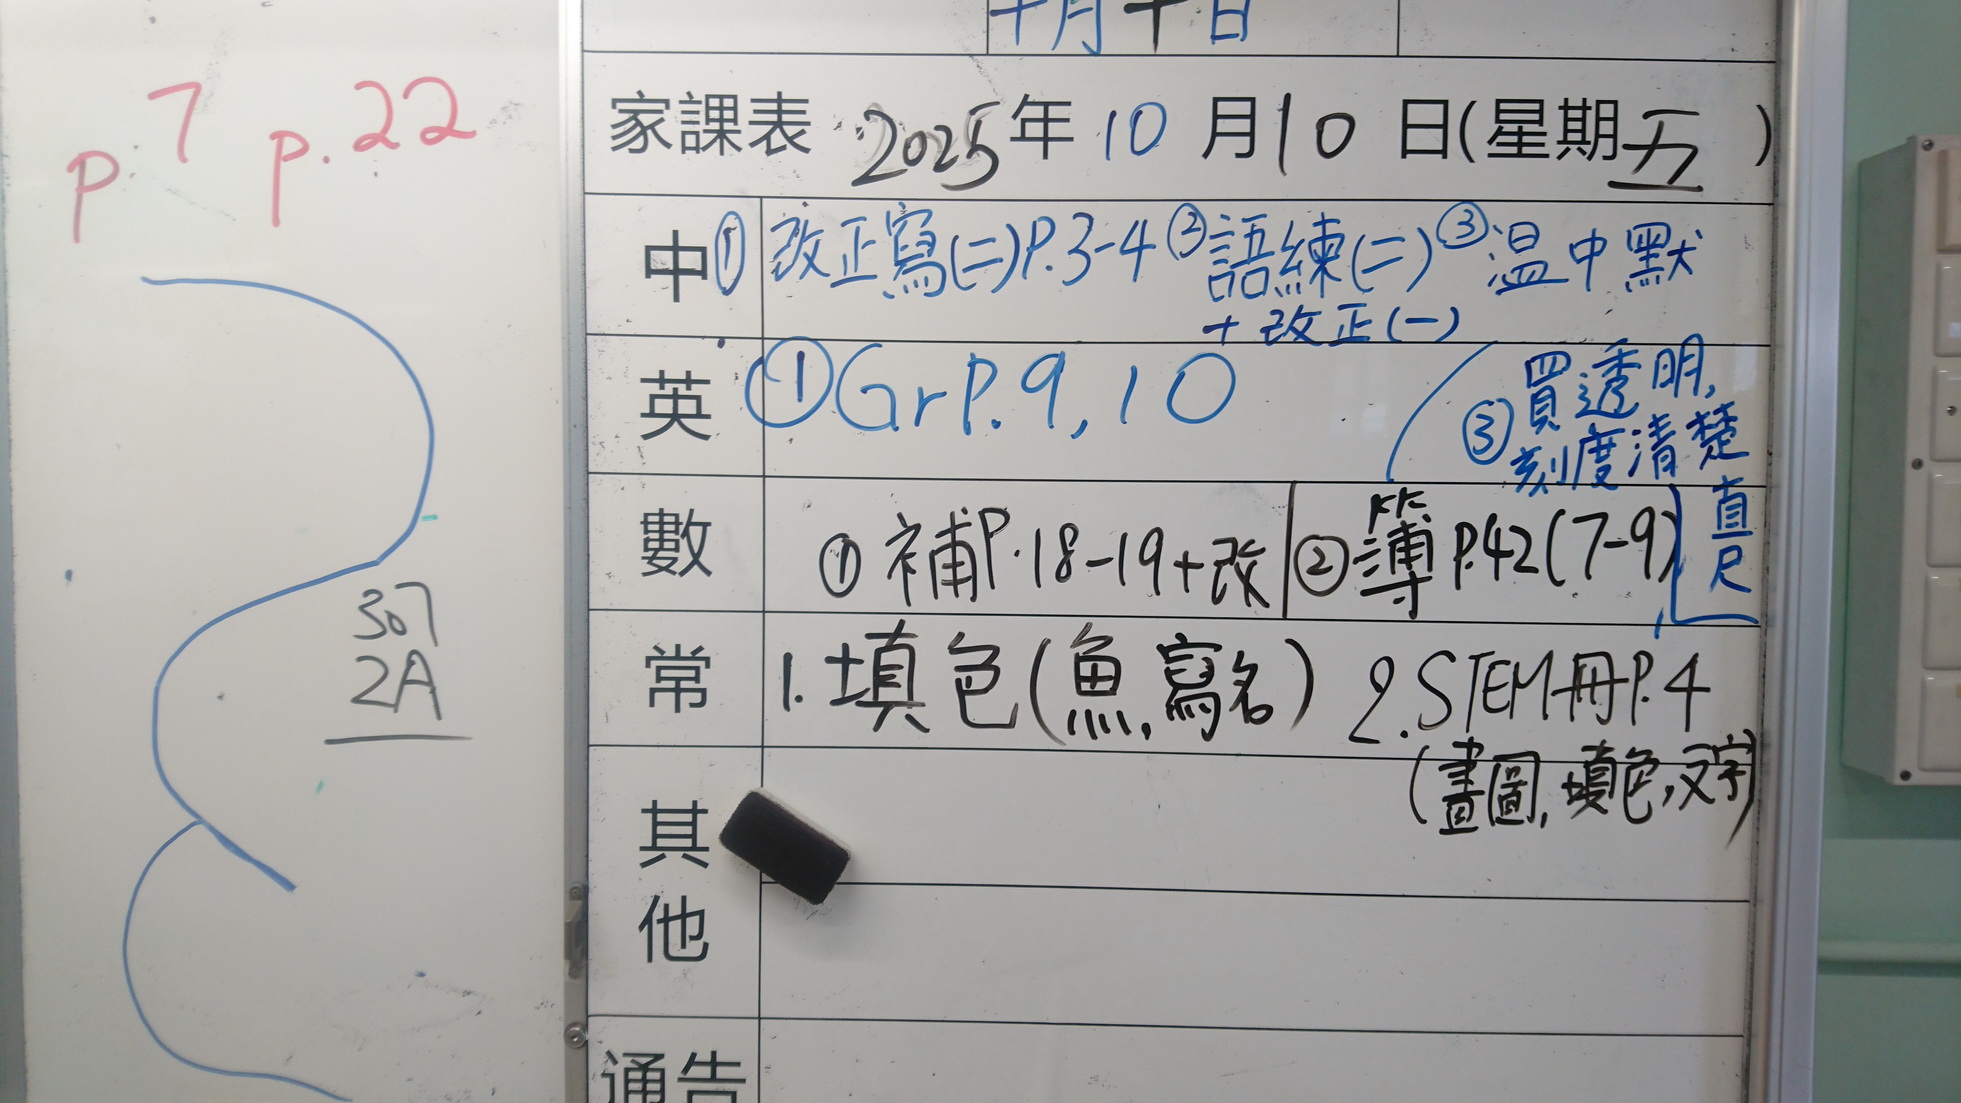 p.7 p.22
307
2A
十月十日
家課表 2025年10月10日(星期五)
中 ①改正寫(二)P.3-4 ②語練(二) ③温中默
+改正(一)
英 ①Gr P.9,10
③買透明,
刻度清楚
直尺
數 ①補P.18-19+改 ②簿P.42(7-9)
常 1.填色(魚,寫名) 2.STEM冊P.4
(畫圖,填色,文字)
其他
通告